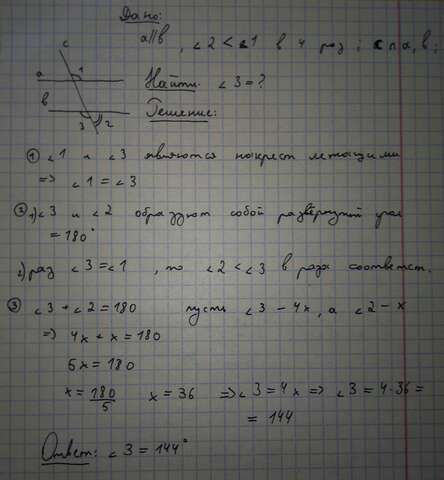 Дано:
a||b, ∠2 < ∠1 в 4 раз; c∩a,b;
c
a
1
b
3 2
Найти ∠3=?
Решение:
① ∠1 и ∠3 являются накрест лежащими
=> ∠1 = ∠3
② 1) ∠3 и ∠2 образуют собой развернутый угол
= 180°
2) раз ∠3=∠1, то ∠2 < ∠3 в раза соответст.
③ ∠3 + ∠2 = 180 пусть ∠3 - 4x, а ∠2 - x
=> 4x + x = 180
5x = 180
x = 180/5 x = 36 => ∠3 = 4x => ∠3 = 4·36 =
= 144
Ответ: ∠3 = 144°